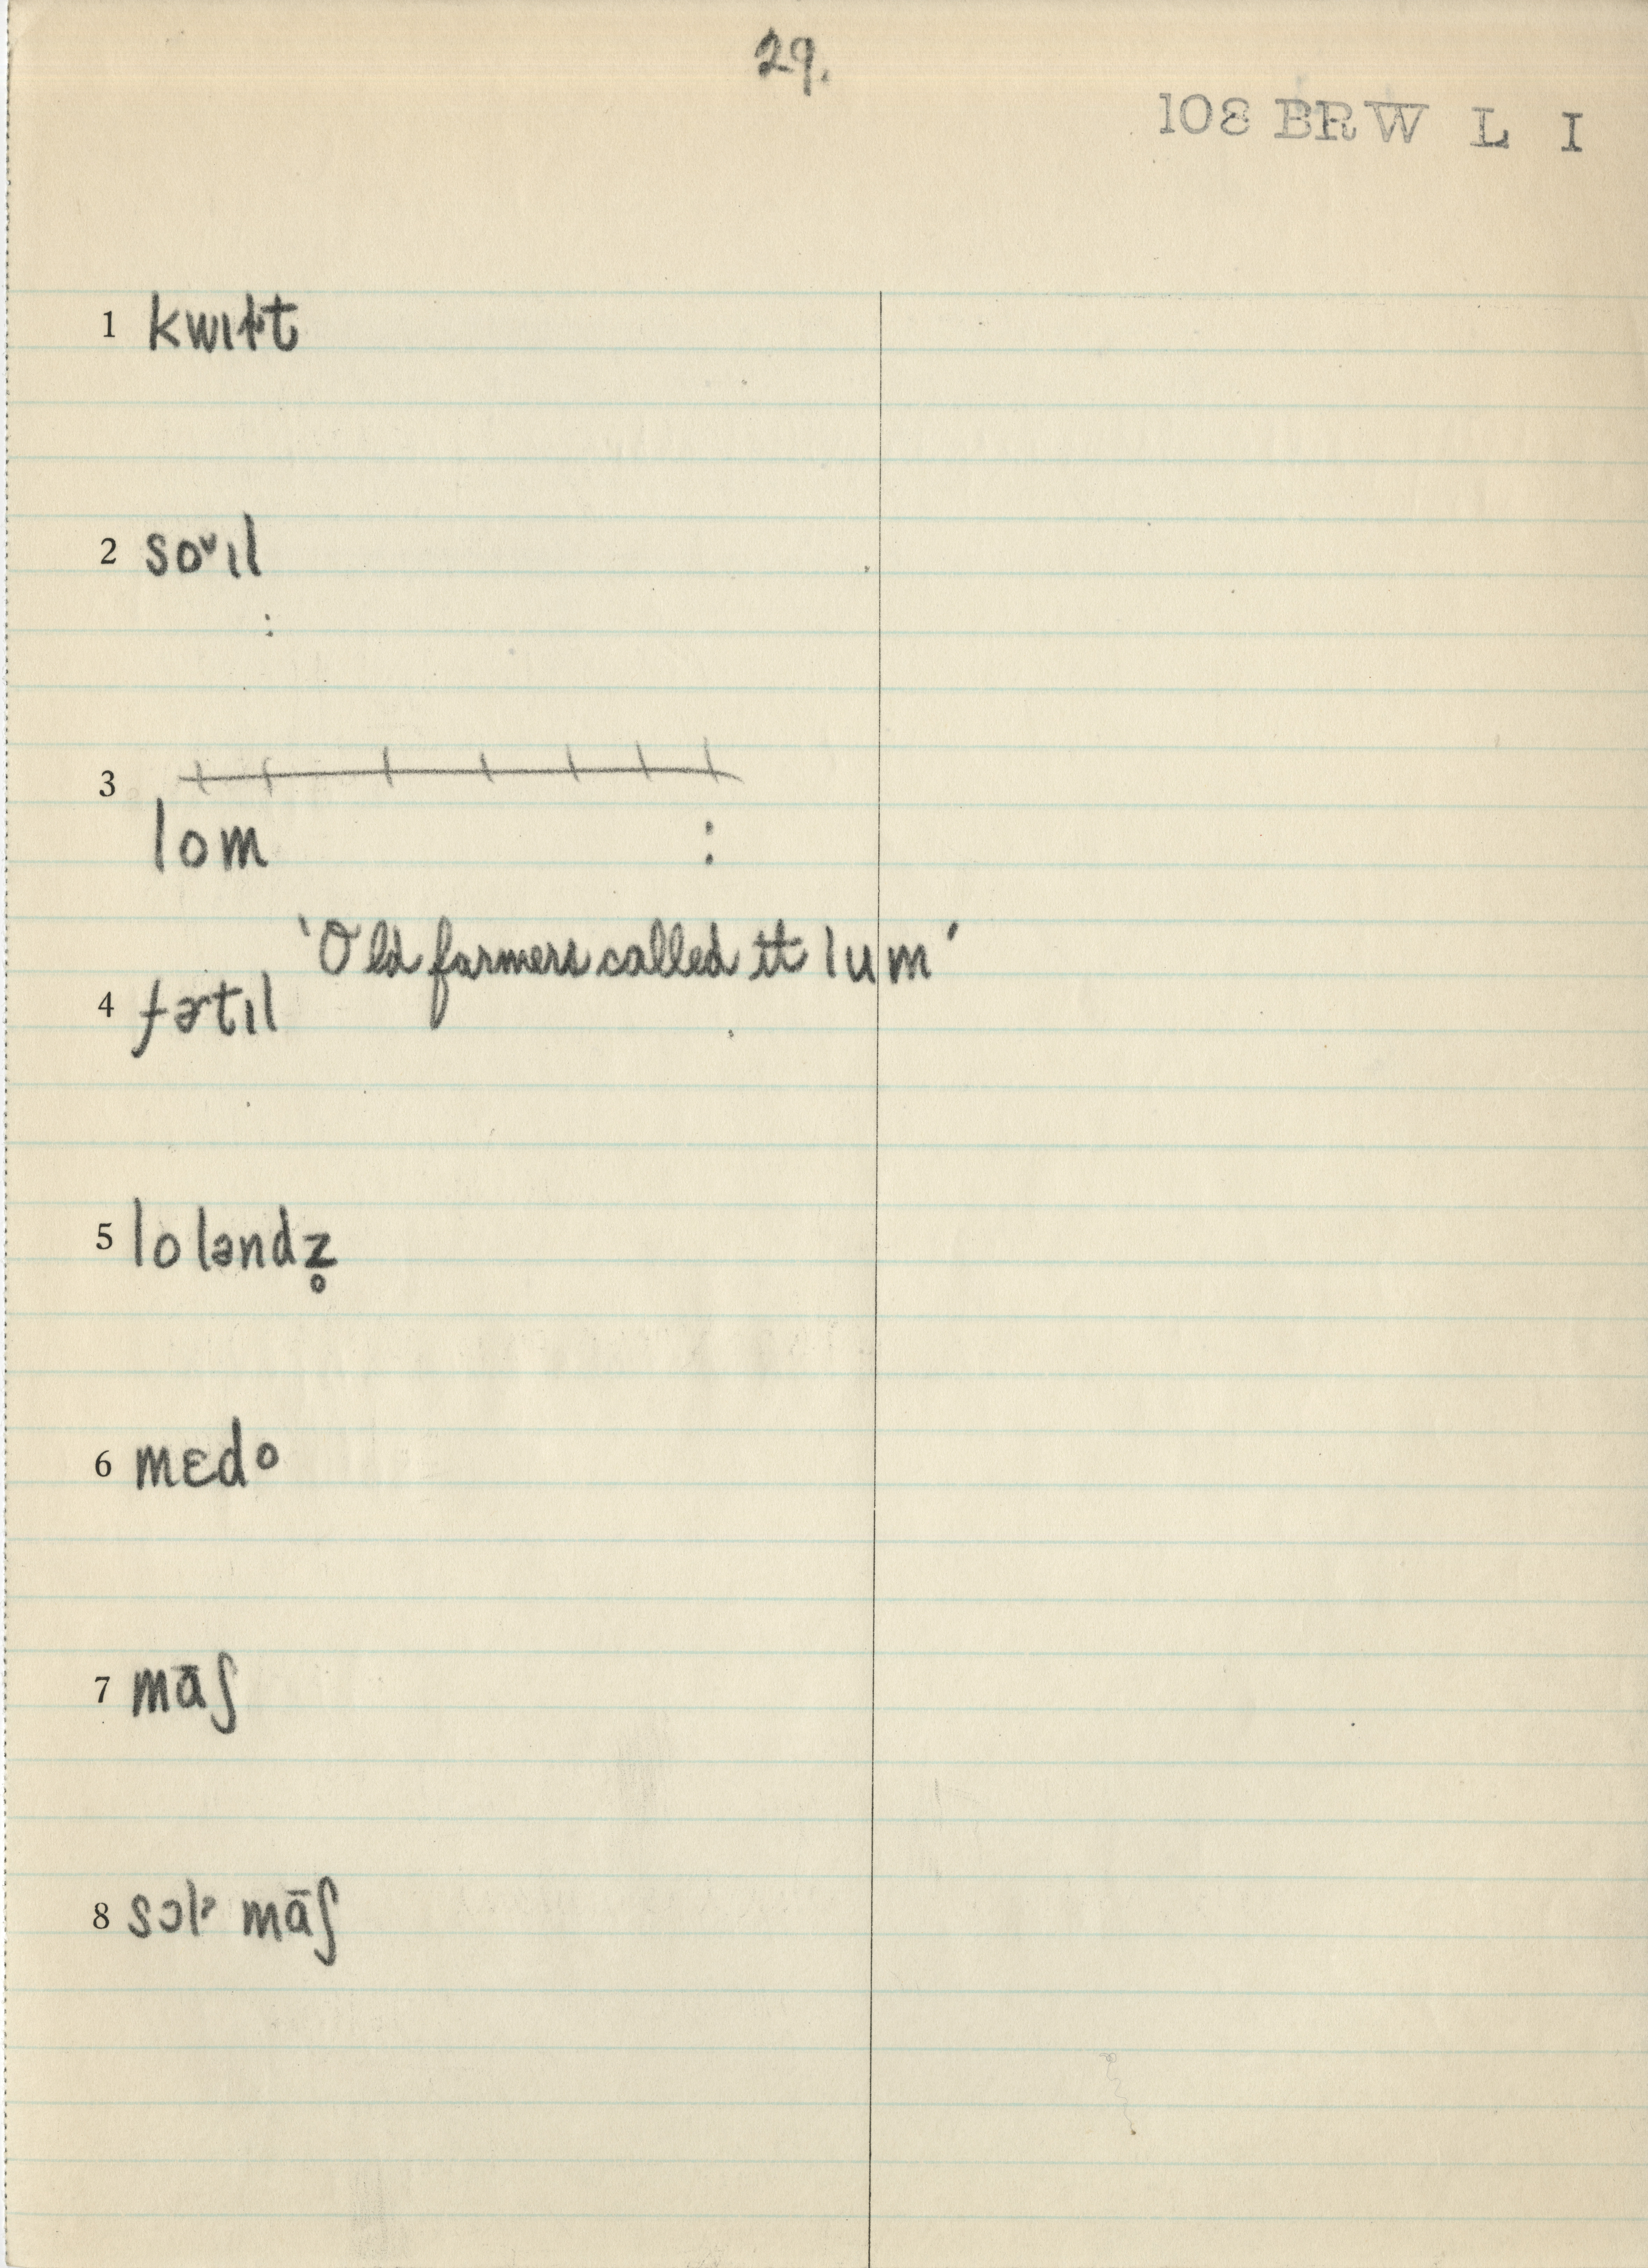 29.
108 BRW L I
1 kwɪɫt
2 soᵛɪl
:
3
lom :
'Old farmers called it lum'
4 fɚtɪl
5 loləndz̥
6 mɛdo
7 māʃ
8 sɔlˀ māʃ